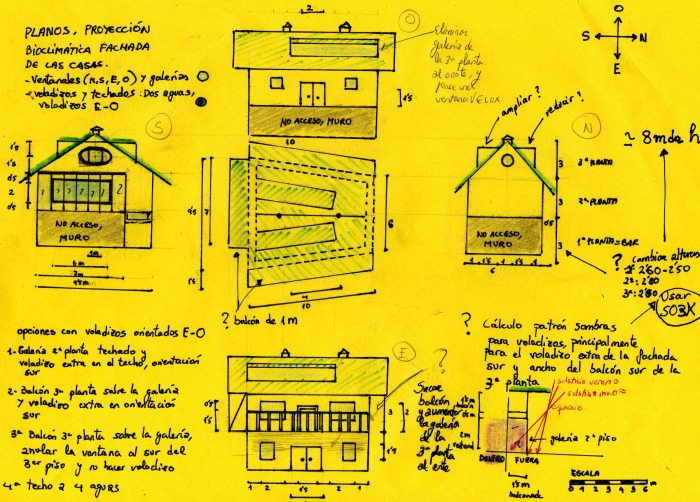 PLANOS, PROYECCIÓN
BIOCLIMÁTICA FACHADA
DE LAS CASAS.
- Ventanales (N, S, E, O) y galerías
- voladizos y techados: Dos aguas,
voladizos E-O
2
O
Eliminar
galería de
la 3ª planta
al oeste, y
poner una
ventana VELUX
1'5
NO ACCESO, MURO
10
O
S
N
E
S
1'5
1'5
0'5
2
0'5
2
NO ACCESO,
MURO
7
6
1'5
4
10
? balcón de 1 m
ampliar?
reducir?
N
≃ 8m de h
3
3ª PLANTA
3
2ª PLANTA
0'5
3
1ª PLANTA = BAR
NO ACCESO
MURO
6
? cambiar alturas
1ª: 2'60 - 2'50
2ª: 2'80
3ª: 2'80
Usar
503X
opciones con voladizos orientados E-O
1- Galería 2ª planta techado y
voladizo extra en el techo, orientación
sur
2- Balcón 3ª planta sobre la galería
y voladizo extra en orientación
sur
3ª Balcón 3ª planta sobre la galería,
anular la ventana al sur del
3er piso y no hacer voladizo
4ª techo a 4 aguas
E
?
3
2
1 2 1 2 1
Sacar
balcón
y aumentar
la galería
de la
3ª planta
al este
? Cálculo patrón sombras
para voladizos, principalmente
para el voladizo extra de la fachada
sur y ancho del balcón sur de la
3ª planta
solsticio verano
galería 2º piso
2m
DENTRO
FUERA
1'5m
balconada
ESCALA